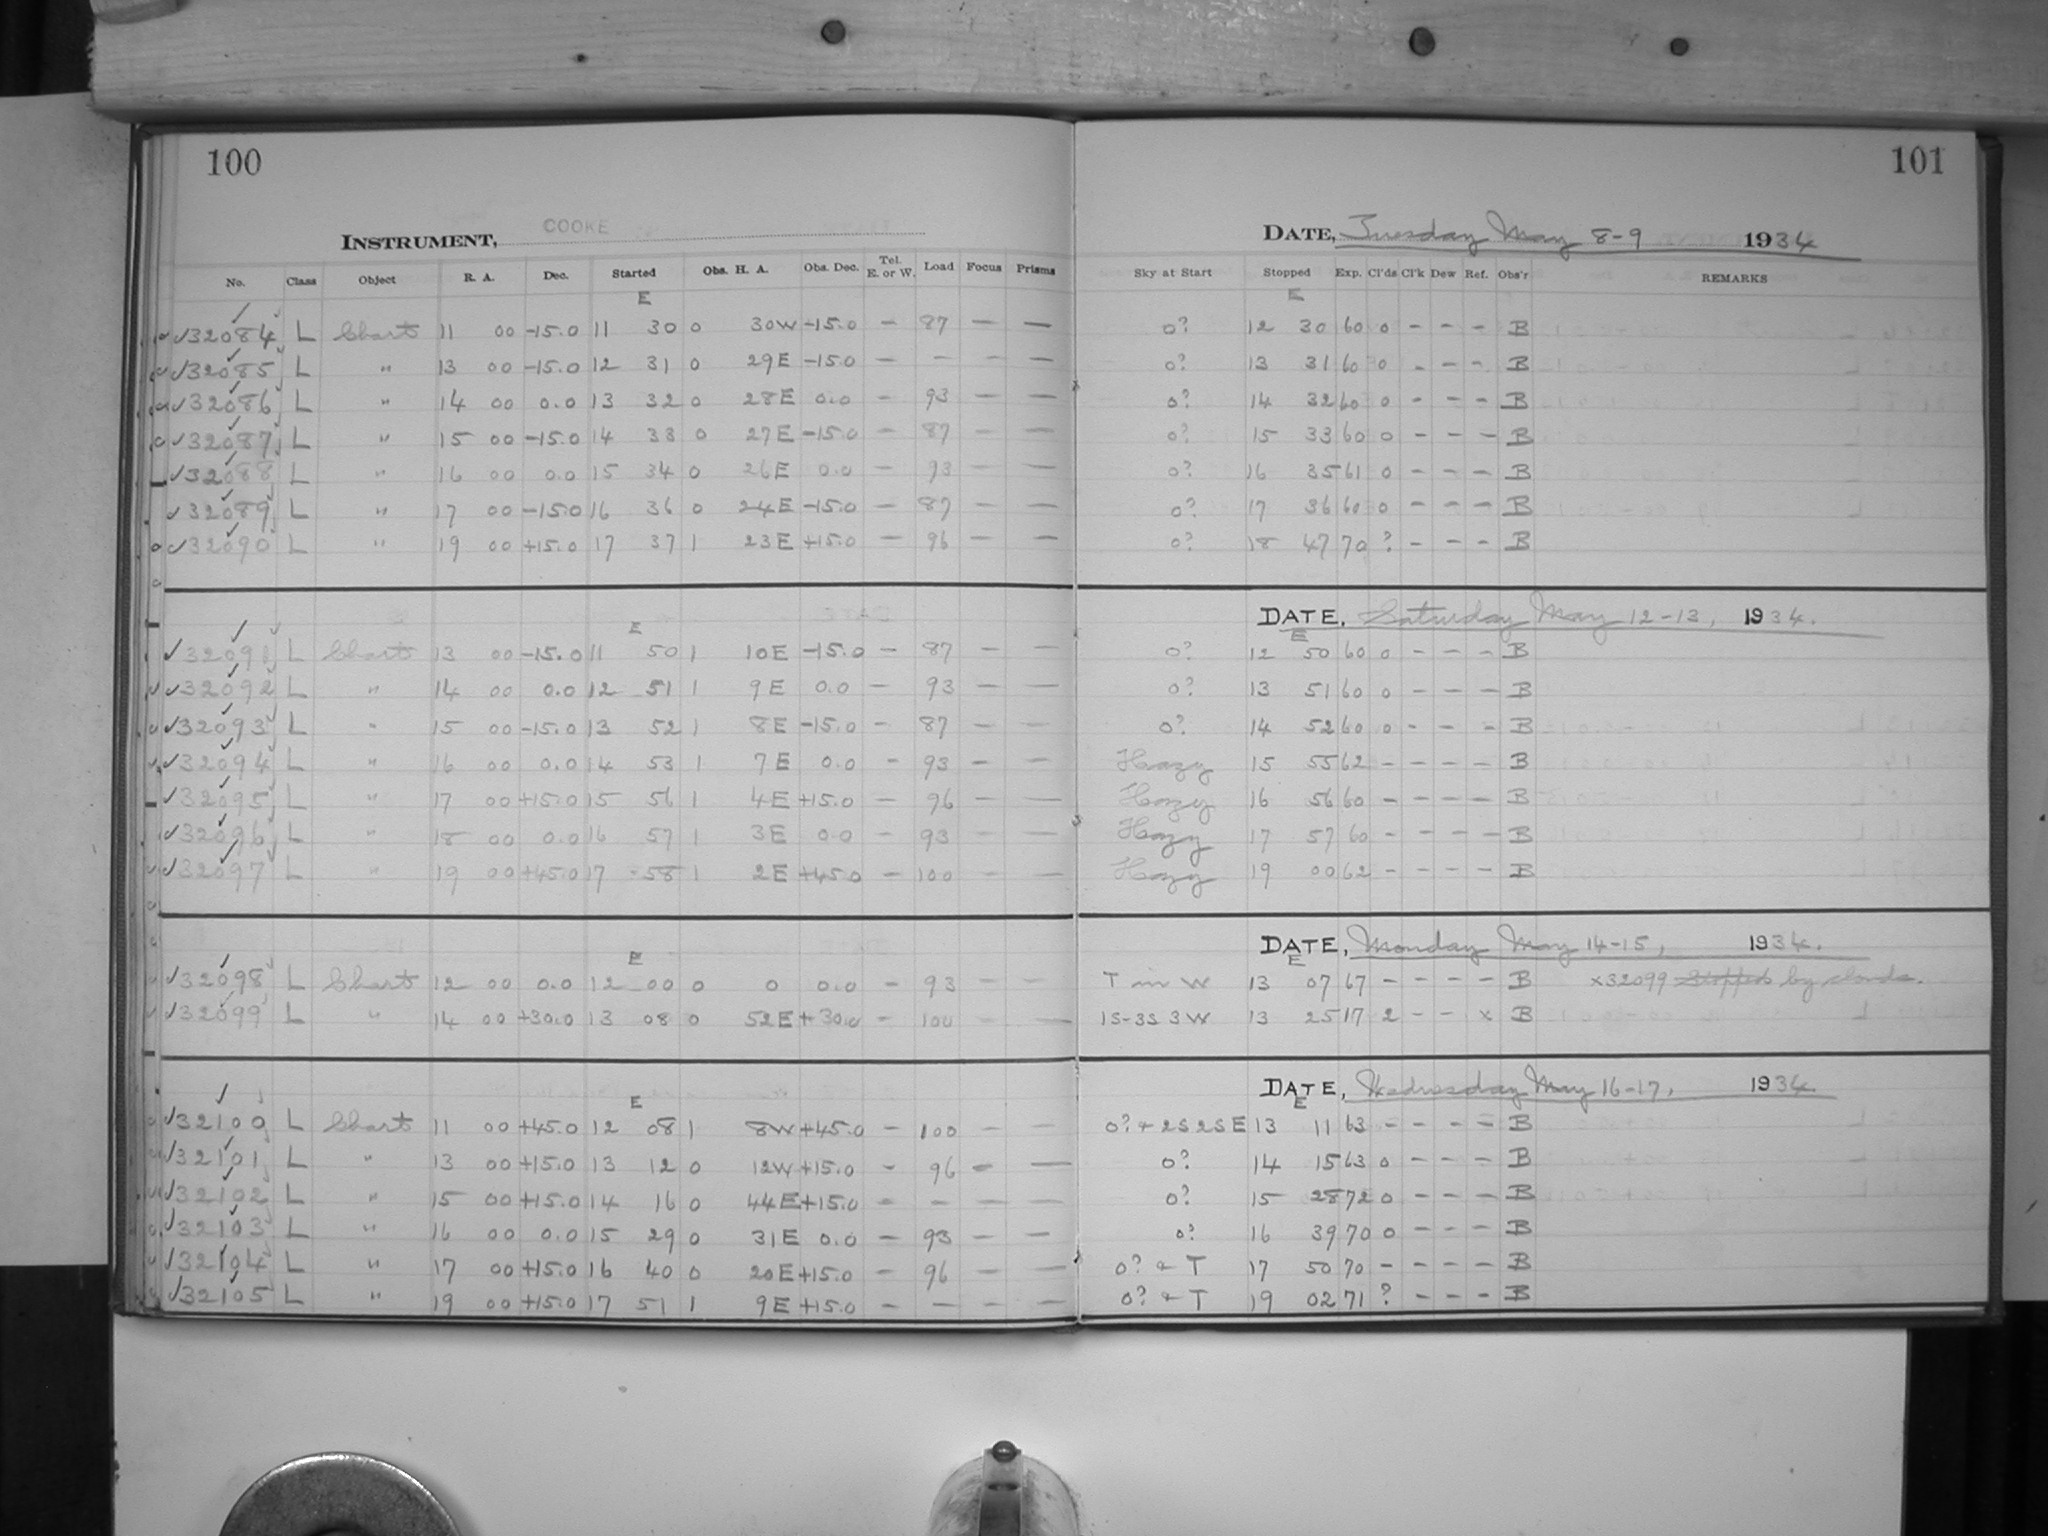 100
101
COOKE
INSTRUMENT,
DATE, Tuesday May 8-9 1934
No. Class Object R. A. Dec. Started Obs. H. A. Obs. Dec. Tel. E. or W. Load Focus Prisms Sky at Start Stopped Exp. Cl'ds Cl'k Dew Ref. Obs'r REMARKS
E E
32084 L Chart 11 00 -15.0 11 30 0 30W -15.0 - 87 - - 0? 12 30 60 0 - - - B
32085 L " 13 00 -15.0 12 31 0 29E -15.0 - - - - 0? 13 31 60 0 - - - B
32086 L " 14 00 0.0 13 32 0 28E 0.0 - 93 - - 0? 14 32 60 0 - - - B
32087 L " 15 00 -15.0 14 33 0 27E -15.0 - 87 - - 0? 15 33 60 0 - - - B
32088 L " 16 00 0.0 15 34 0 26E 0.0 - 93 - - 0? 16 35 61 0 - - - B
32089 L " 17 00 -15.0 16 36 0 24E -15.0 - 87 - - 0? 17 36 60 0 - - - B
32090 L " 19 00 +15.0 17 37 1 23E +15.0 - 96 - - 0? 18 47 70 ? - - - B
DATE, Saturday May 12-13, 1934.
E E
32091 L Chart 13 00 -15.0 11 50 1 10E -15.0 - 87 - - 0? 12 50 60 0 - - - B
32092 L " 14 00 0.0 12 51 1 9E 0.0 - 93 - - 0? 13 51 60 0 - - - B
32093 L " 15 00 -15.0 13 52 1 8E -15.0 - 87 - - 0? 14 52 60 0 - - - B
32094 L " 16 00 0.0 14 53 1 7E 0.0 - 93 - - Hazy 15 55 62 - - - - B
32095 L " 17 00 +15.0 15 56 1 4E +15.0 - 96 - - Hazy 16 56 60 - - - - B
32096 L " 18 00 0.0 16 57 1 3E 0.0 - 93 - - Hazy 17 57 60 - - - - B
32097 L " 19 00 +45.0 17 58 1 2E +45.0 - 100 - - Hazy 19 00 62 - - - - B
DATE, Monday May 14-15, 1934.
E E
32098 L Chart 12 00 0.0 12 00 0 0 0.0 - 93 - - T in W 13 07 67 - - - - B x32099 Stopped by clouds.
32099 L " 14 00 +30.0 13 08 0 52E +30.0 - 100 - - 1S-3S 3W 13 25 17 2 - - x B
DATE, Wednesday May 16-17, 1934.
E E
32100 L Chart 11 00 +45.0 12 08 1 8W +45.0 - 100 - - 0? + 2S 2SE 13 11 63 - - - - B
32101 L " 13 00 +15.0 13 12 0 12W +15.0 - 96 - - 0? 14 15 63 0 - - - B
32102 L " 15 00 +15.0 14 16 0 44E +15.0 - - - - 0? 15 28 72 0 - - - B
32103 L " 16 00 0.0 15 29 0 31E 0.0 - 93 - - 0? 16 39 70 0 - - - B
32104 L " 17 00 +15.0 16 40 0 20E +15.0 - 96 - - 0? + T 17 50 70 - - - - B
32105 L " 19 00 +15.0 17 51 1 9E +15.0 - - - - 0? + T 19 02 71 ? - - - B